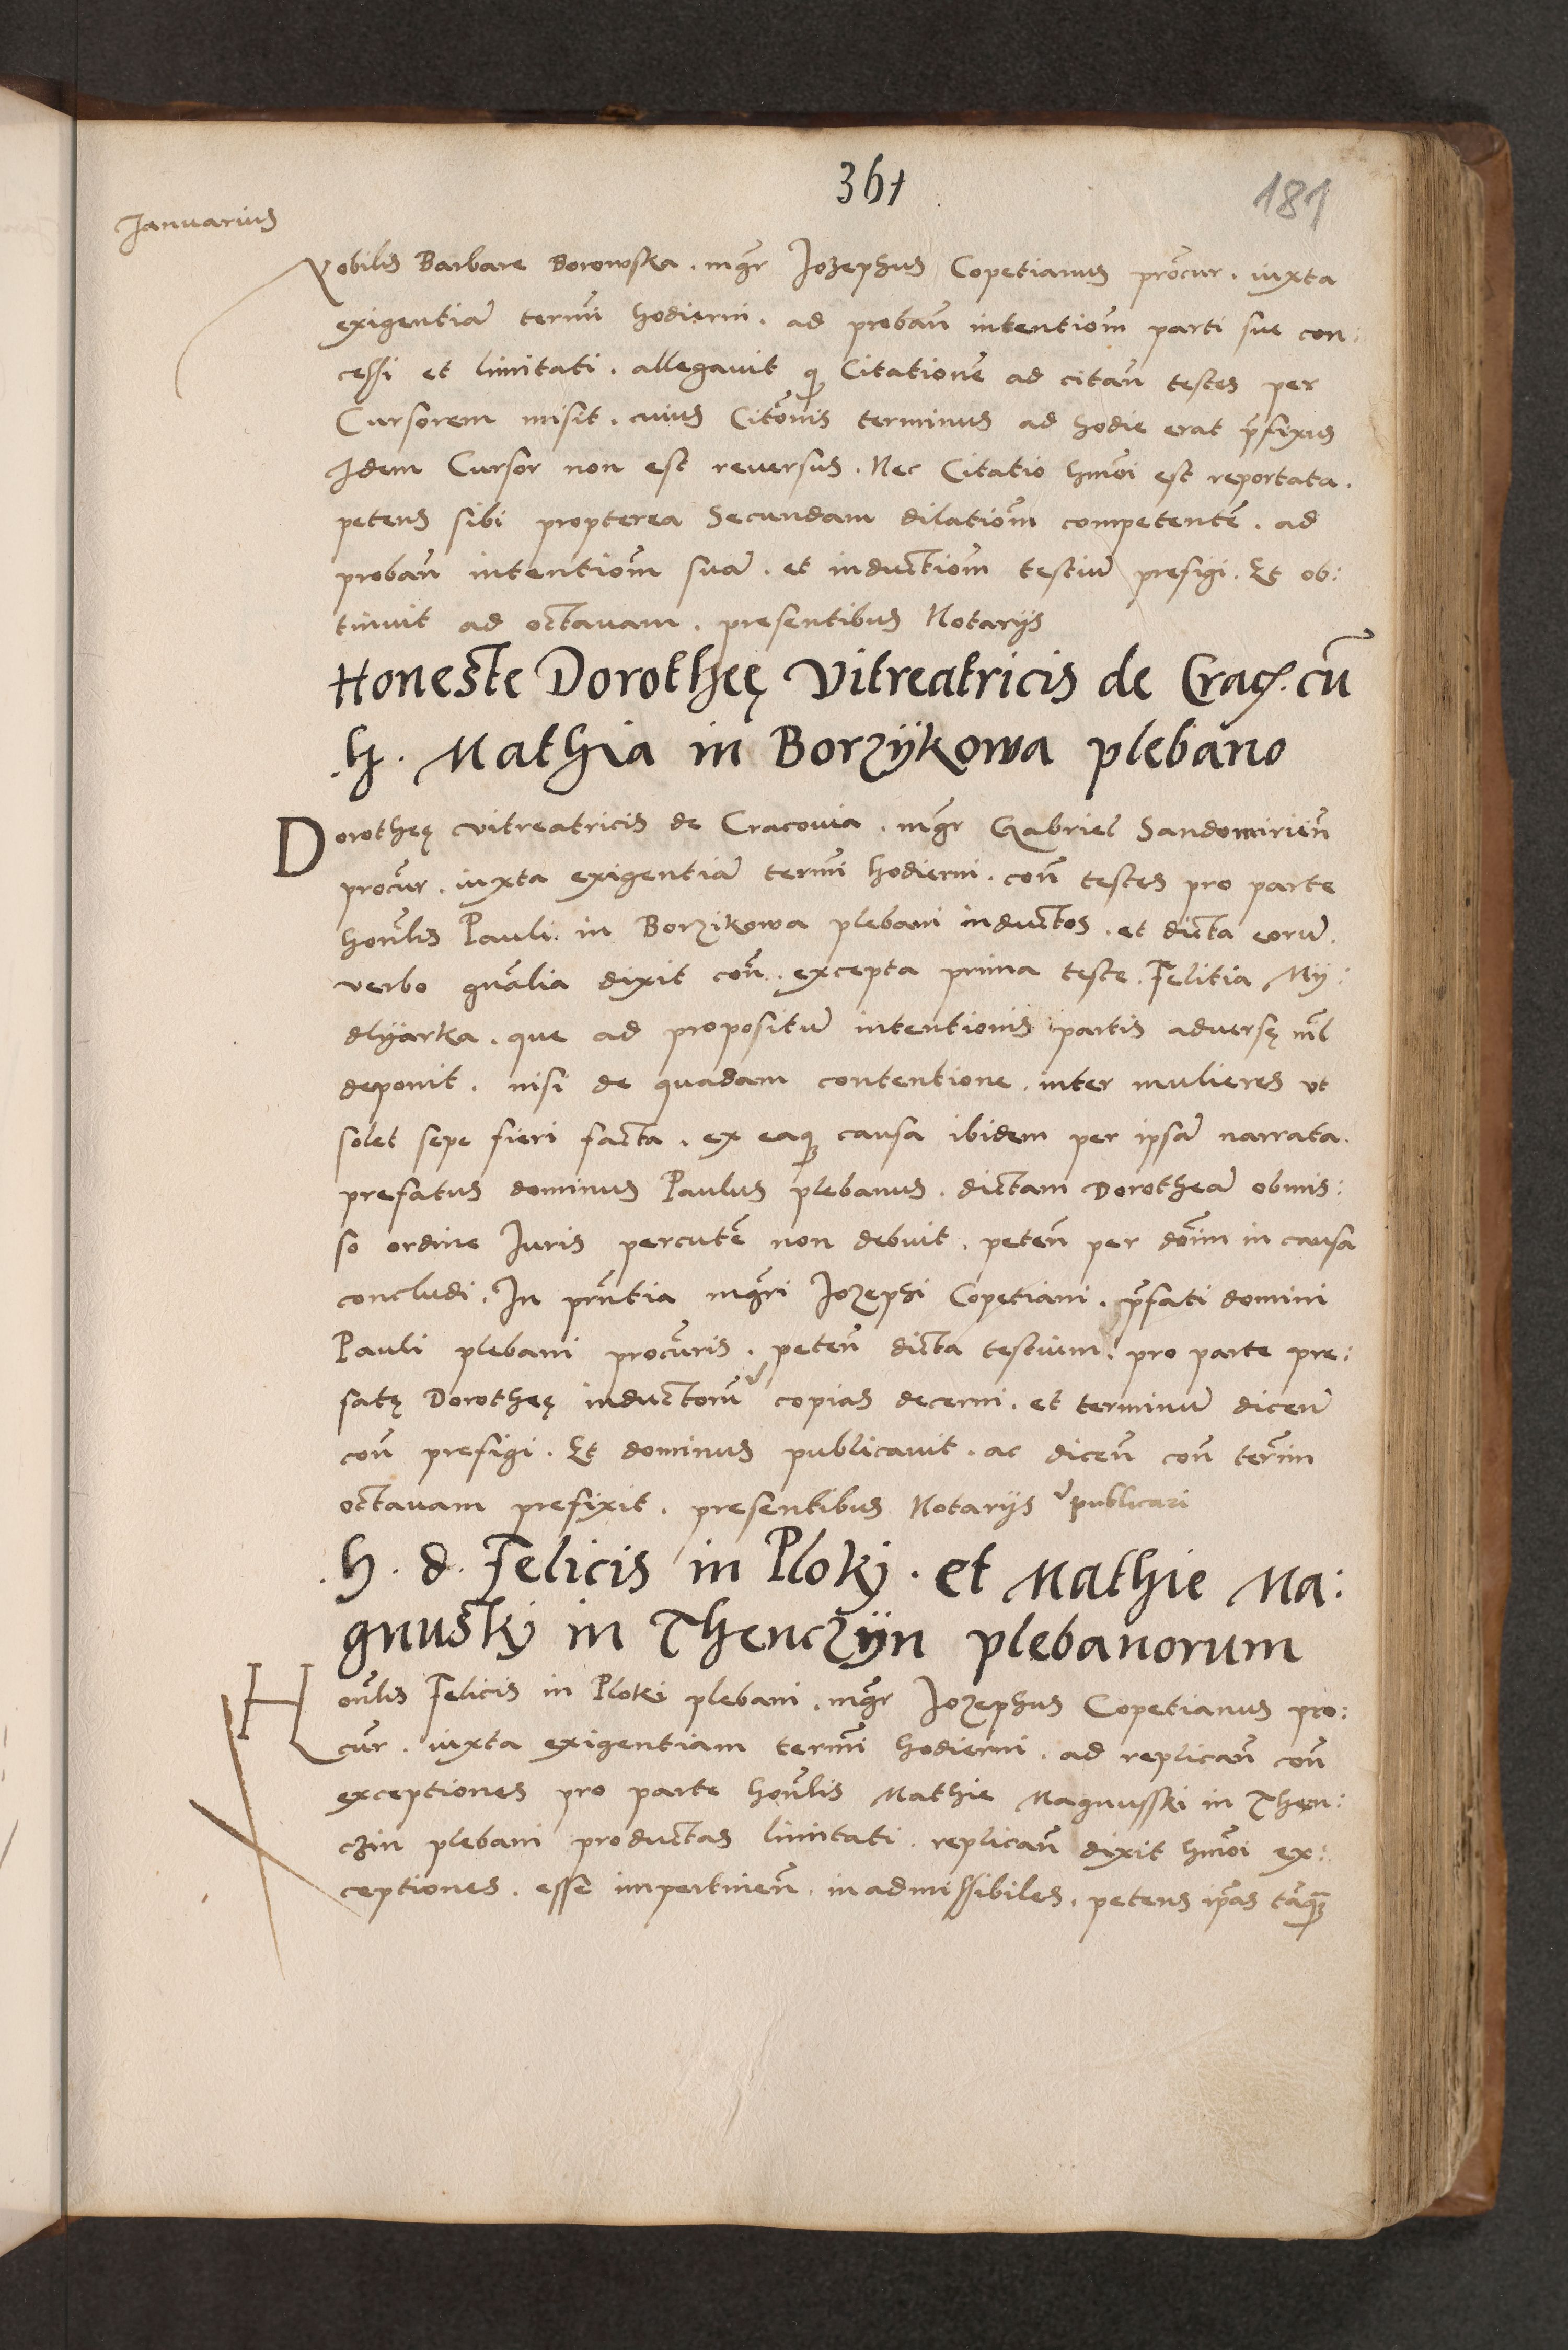 361
181
Januarius
Nobilis Barbare Borowska . mgr̄ Jozephus Copetianus procūr . iuxta
exigentiā termī hodierni . ad probañ intentiom̄ parti sue con:
cessi et limitati . allegavit q̄ Citationē ad citañ testes per
Cursorem misit . cuius Citōnis terminus ad hodie erat p̄fixus
Idem Cursor non est reversus . Nec Citatio hmōi est reportata .
petens sibi propterea Secundam dilatiom̄ competentē . ad
probañ intentiom̄ suā . et inductiom̄ testiū prefigi . Et ob:
tinuit ad octavam . presentibus Notarijs
Honeste Dorotheę Vitreatricis de Crac. cū
.h. Mathia in Borzÿkowa plebano
Dorotheę vitreatricis de Cracovia . mgr̄ Gabriel Sandomirień
procūr . iuxta exigentiā termī hodierni . coñ testes pro parte
honlīs Pauli in Borzikowa plebani inductos . et dicta eorū .
verbo gnālia dixit coñ . excepta prima teste . Felitia Mÿ:
dlÿarka . que ad propositū intentionis partis adversę nīl
deponit . nisi de quadam contentione . inter mulieres ut
solet sepe fieri facta . ex eaq̄ causa ibidem per ipsā narrata .
prefatus dominus Paulus plebanus . dictam Dorotheā obmis:
so ordine Juris percutē non debuit . peteñ per dōim in causa
concludi . In prn̄tia mgrī Jozephi Copetiani . p̄fati domini
Pauli plebani procūris . peteñ dicta testium . pro parte pre:
fatę Dorotheę inductorū copias decerni . et terminū diceñ
coñ prefigi . Et dominus publicavit . ac diceñ coñ termī
octavam prefixit . presentibus Notarijs publicari
.h. d. Felicis in Ploki . et Mathie Ma:
gnuski in Thenczÿn plebanorum
Honlīs Felicis in Ploki plebani . mgr̄ Jozephus Copetianus pro:
cūr . iuxta exigentiam termī hodierni . ad replicañ coñ
exceptiones pro parte honlīs Mathie Magnusski in Then:
czin plebani productas limitati . replicañ dixit hmōi ex:
ceptiones . esse impertineñ . inadmissibiles . petens ip̄as tāq̄